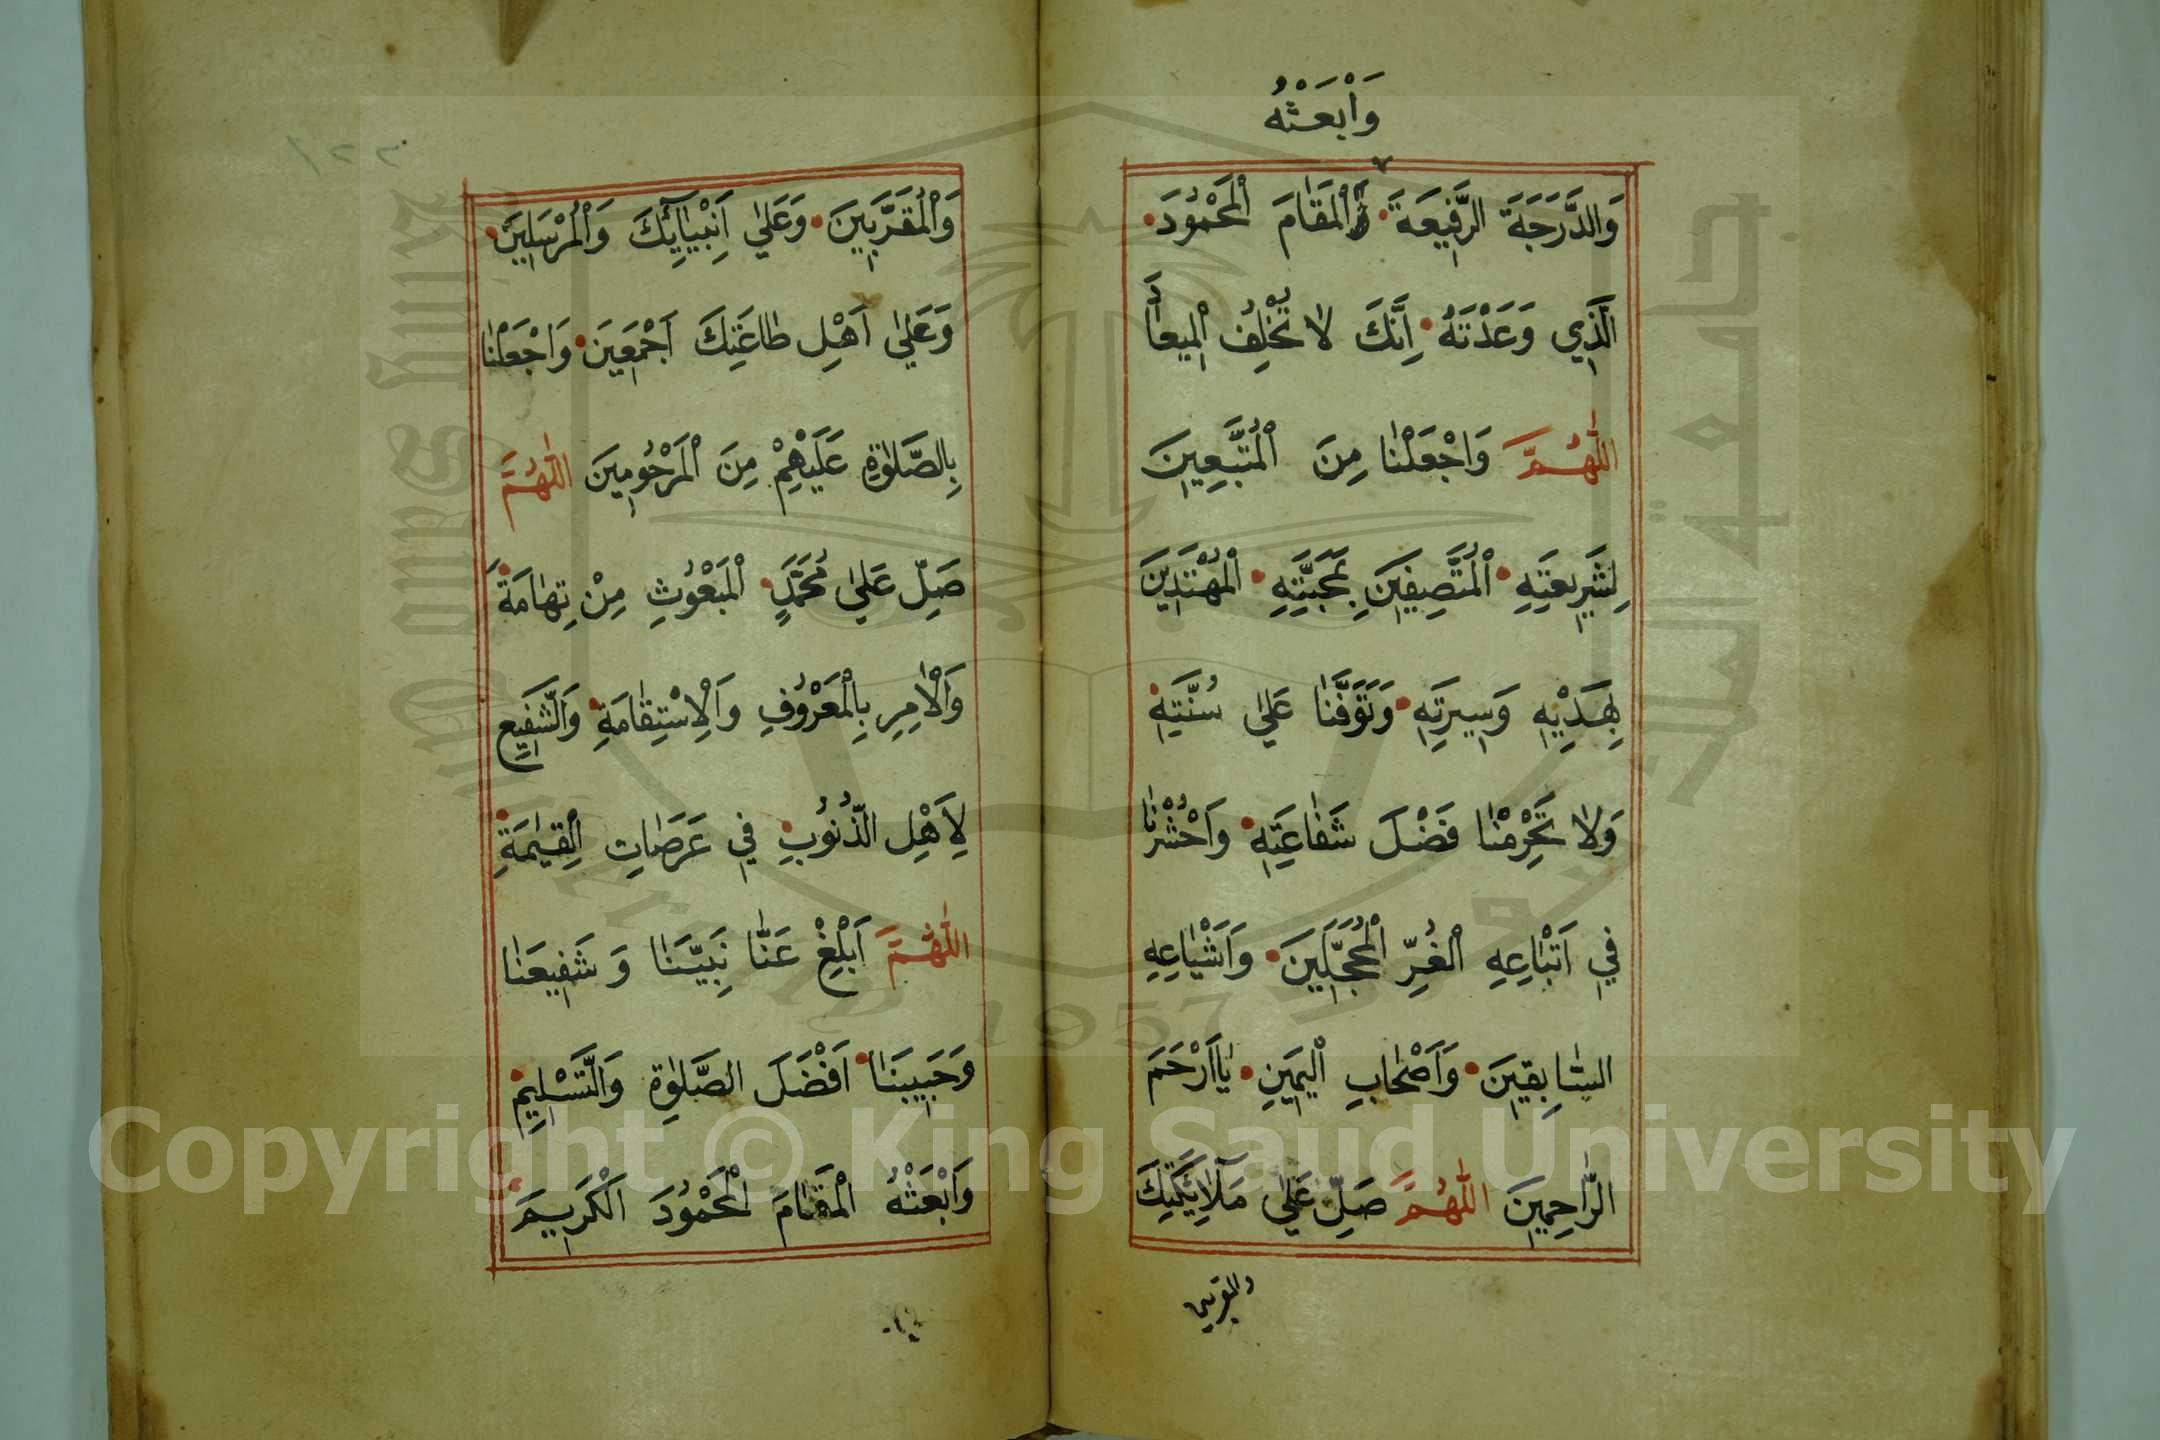 وَابْعَثْهُ
وَالدَّرَجَةَ الرَّفِيعَةَ الْمَقَامَ الْمَحْمُودَ
الَّذِي وَعَدْتَهُ اِنَّكَ لَا تُخْلِفُ الْمِيعَادَ
اللّٰهُمَّ وَاجْعَلْنَا مِنَ الْمُتَّبِعِينَ
لِشَرِيعَتِهِ الْمُتَّصِفِينَ بِمَحَبَّتِهِ الْمُهْتَدِينَ
بِهَدْيِهِ وَسِيرَتِهِ وَتَوَفَّنَا عَلَى سُنَّتِهِ
وَلَا تَحْرِمْنَا فَضْلَ شَفَاعَتِهِ وَاحْشُرْنَا
فِي اَتْبَاعِهِ الْغُرِّ الْمُحَجَّلِينَ وَاَشْيَاعِهِ
السَّابِقِينَ وَاَصْحَابِ الْيَمِينِ يَا اَرْحَمَ
الرَّاحِمِينَ اللّٰهُمَّ صَلِّ عَلَى مَلَآئِكَتِكَ
والمقربين
وَالْمُقَرَّبِينَ وَعَلَى اَنْبِيَائِكَ وَالْمُرْسَلِينَ
وَعَلَى اَهْلِ طَاعَتِكَ اَجْمَعِينَ وَاجْعَلْنَا
بِالصَّلٰوةِ عَلَيْهِمْ مِنَ الْمَرْحُومِينَ اللّٰهُمَّ
صَلِّ عَلَى مُحَمَّدٍ الْمَبْعُوثِ مِنْ تِهَامَةَ
وَالْاٰمِرِ بِالْمَعْرُوفِ وَالْاِسْتِقَامَةِ وَالشَّفِيعِ
لِاَهْلِ الذُّنُوبِ فِي عَرَصَاتِ الْقِيٰمَةِ
اللّٰهُمَّ اَبْلِغْ عَنَّا نَبِيَّنَا وَشَفِيعَنَا
وَحَبِيبَنَا اَفْضَلَ الصَّلٰوةِ وَالتَّسْلِيمِ
وَابْعَثْهُ الْمَقَامَ الْمَحْمُودَ الْكَرِيمَ
جامعة الملك سعود
King Saud University
1957
Copyright © King Saud University